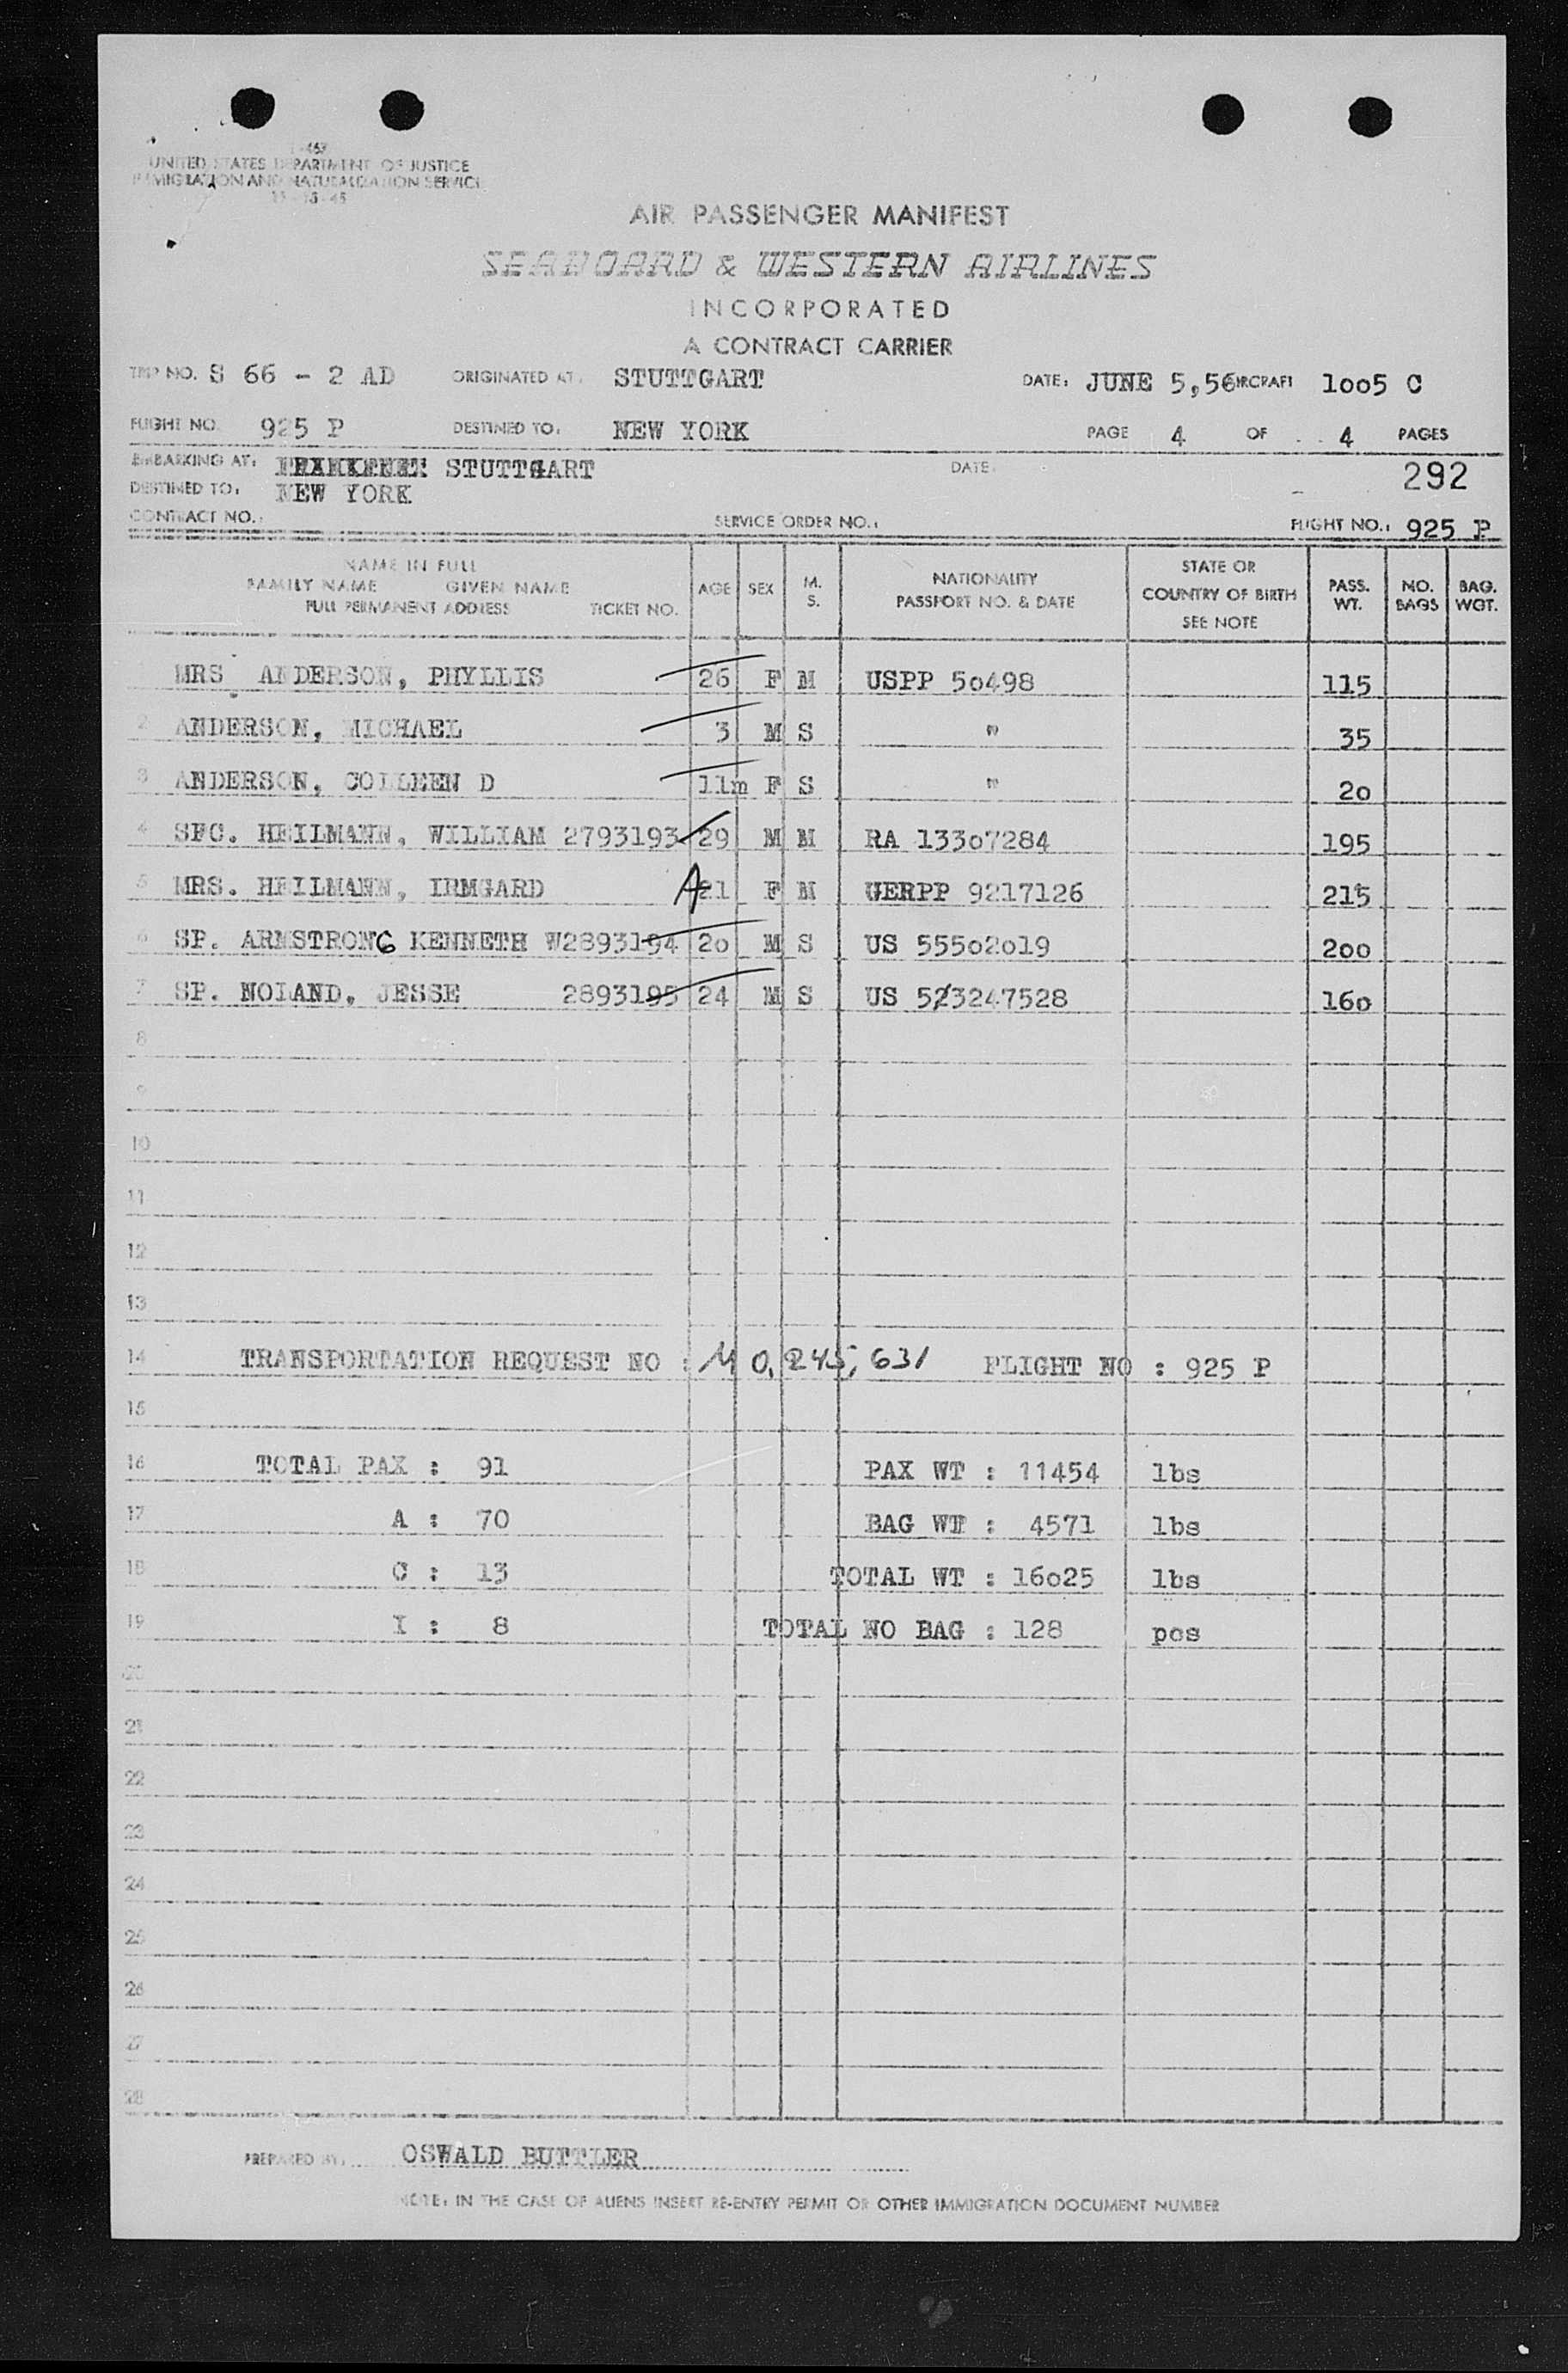 I-467
UNITED STATES DEPARTMENT OF JUSTICE
IMMIGRATION AND NATURALIZATION SERVICE
AIR PASSENGER MANIFEST
SEABOARD & WESTERN AIRLINES
INCORPORATED
A CONTRACT CARRIER
TRIP NO. S 66 - 2 AD ORIGINATED AT: STUTTGART DATE: JUNE 5,56 AIRCRAFT 1005 C
FLIGHT NO. 925 P DESTINED TO: NEW YORK PAGE 4 OF 4 PAGES
EMBARKING AT: STUTTGART DATE:
292
DESTINED TO: NEW YORK
CONTRACT NO.: SERVICE ORDER NO.: FLIGHT NO.: 925 P
NAME IN FULL
FAMILY NAME GIVEN NAME
FULL PERMANENT ADDRESS TICKET NO.
AGE SEX M. S.
NATIONALITY
PASSPORT NO. & DATE
STATE OR
COUNTRY OF BIRTH
SEE NOTE
PASS. WT.
NO. BAGS
BAG. WGT.
1 MRS ANDERSON, PHYLLIS 26 F M USPP 50498 115
2 ANDERSON, MICHAEL 3 M S " 35
3 ANDERSON, COLLEEN D 11m F S " 20
4 SFC. HEILMANN, WILLIAM 2793193 29 M M RA 13307284 195
5 MRS. HEILMANN, IRMGARD A 21 F M GERPP 9217126 215
6 SP. ARMSTRONG KENNETH W2893194 20 M S US 55502019 200
7 SP. NOLAND, JESSE 2893195 24 M S US 523247528 160
8
9
10
11
12
13
14 TRANSPORTATION REQUEST NO : M 0,245,631 FLIGHT NO : 925 P
15
16 TOTAL PAX : 91 PAX WT : 11454 lbs
17 A : 70 BAG WT : 4571 lbs
18 C : 13 TOTAL WT : 16025 lbs
19 I : 8 TOTAL NO BAG : 128 pcs
20
21
22
23
24
25
26
27
28
PREPARED BY: OSWALD BUTTLER
NOTE: IN THE CASE OF ALIENS INSERT RE-ENTRY PERMIT OR OTHER IMMIGRATION DOCUMENT NUMBER